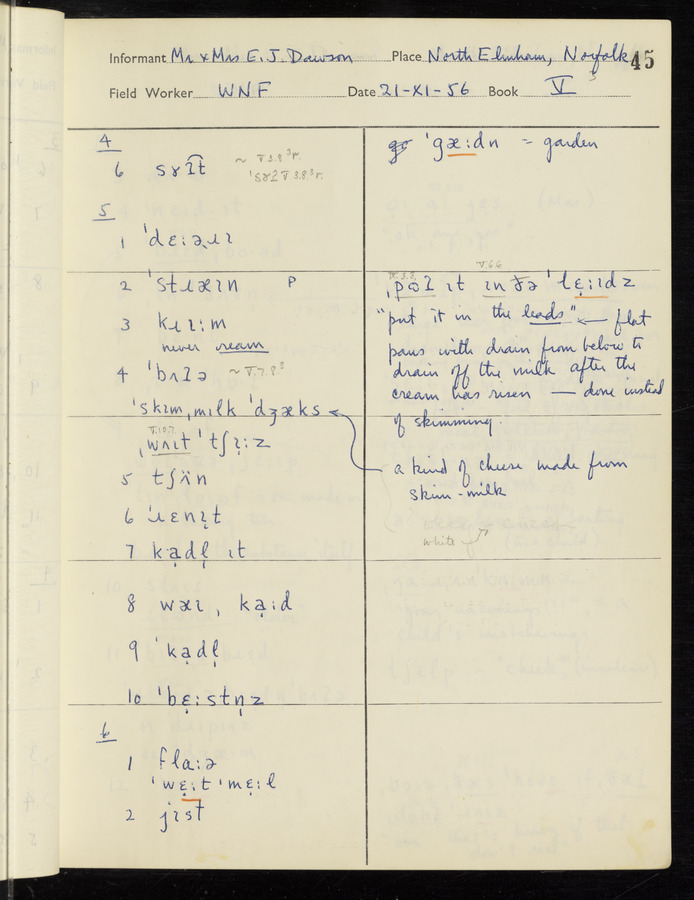 Informant Mr & Mrs E. J. Dawson Place North Elmham, Norfolk 45
Field Worker WNF Date 21-XI-56 Book V
3
4
6 sɤɪt ~ V.3.8 ³r.
5
1 ˈdɛːəɹɪ
2 ˈstɹæɪn P
3 kɹɪːm
never ream
4 ˈbʌɪə ~ V.7.8³
ˈskɪmˌmɪlk ˈdʒæks
V.10.7
ˌwʌɪt ˈtʃɪ̣ːz
5 tʃän
6 ˈɹɛnɪ̣t
7 kạdḷ ɪt
8 wæɪ, kạːd
9 ˈkạdḷ
10 ˈbẹːstṇz
6
1 flaːə
ˈwẹːt ˈmẹːl
2 jɪst
ˈgæːdn = garden
V.6.6
ɪt ɪn ðə ˈlẹːɪdz
"put it in the leads" ← flat
pans with drain from below to
drain off the milk after the
cream has risen — done instead
of skimming.
a kind of cheese made from
skim-milk
white